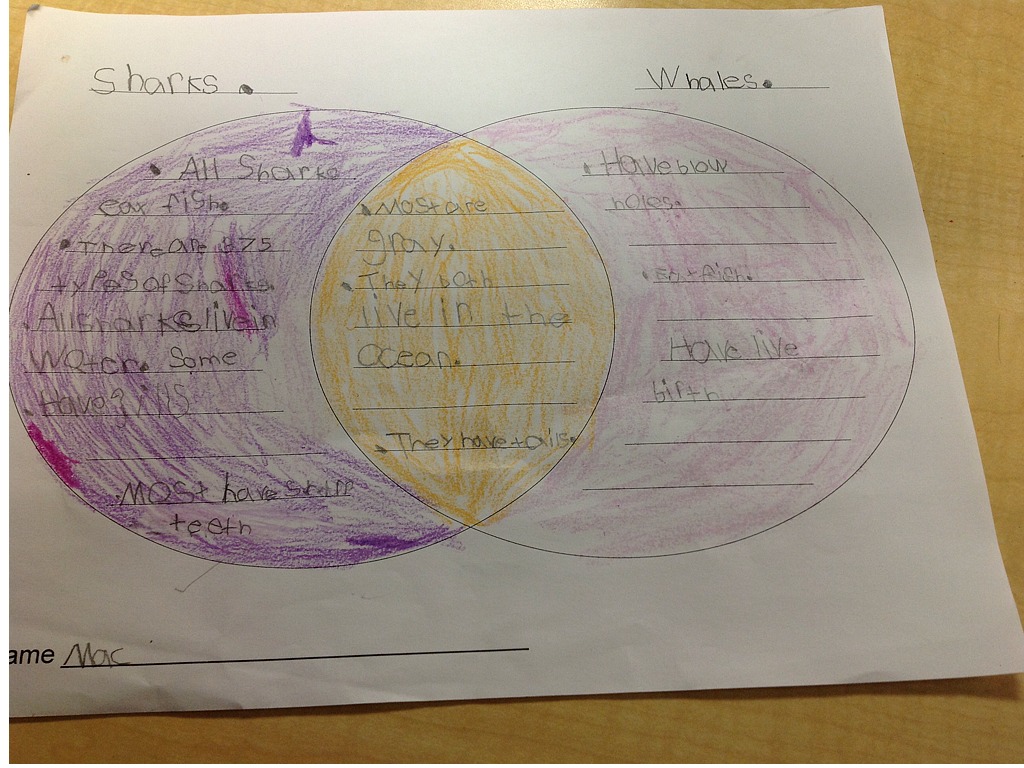 Sharks.
Whales.
• All Sharks
eat fish.
• There are 375
types of Sharks.
• All sharks live in
Water. Some
• Have gills
• Most have
teeth
• Most are
gray.
• They both
live in the
Ocean.
• They have tails.
• Have blow
holes.
• Eat fish.
Have live
birth
ame Mac